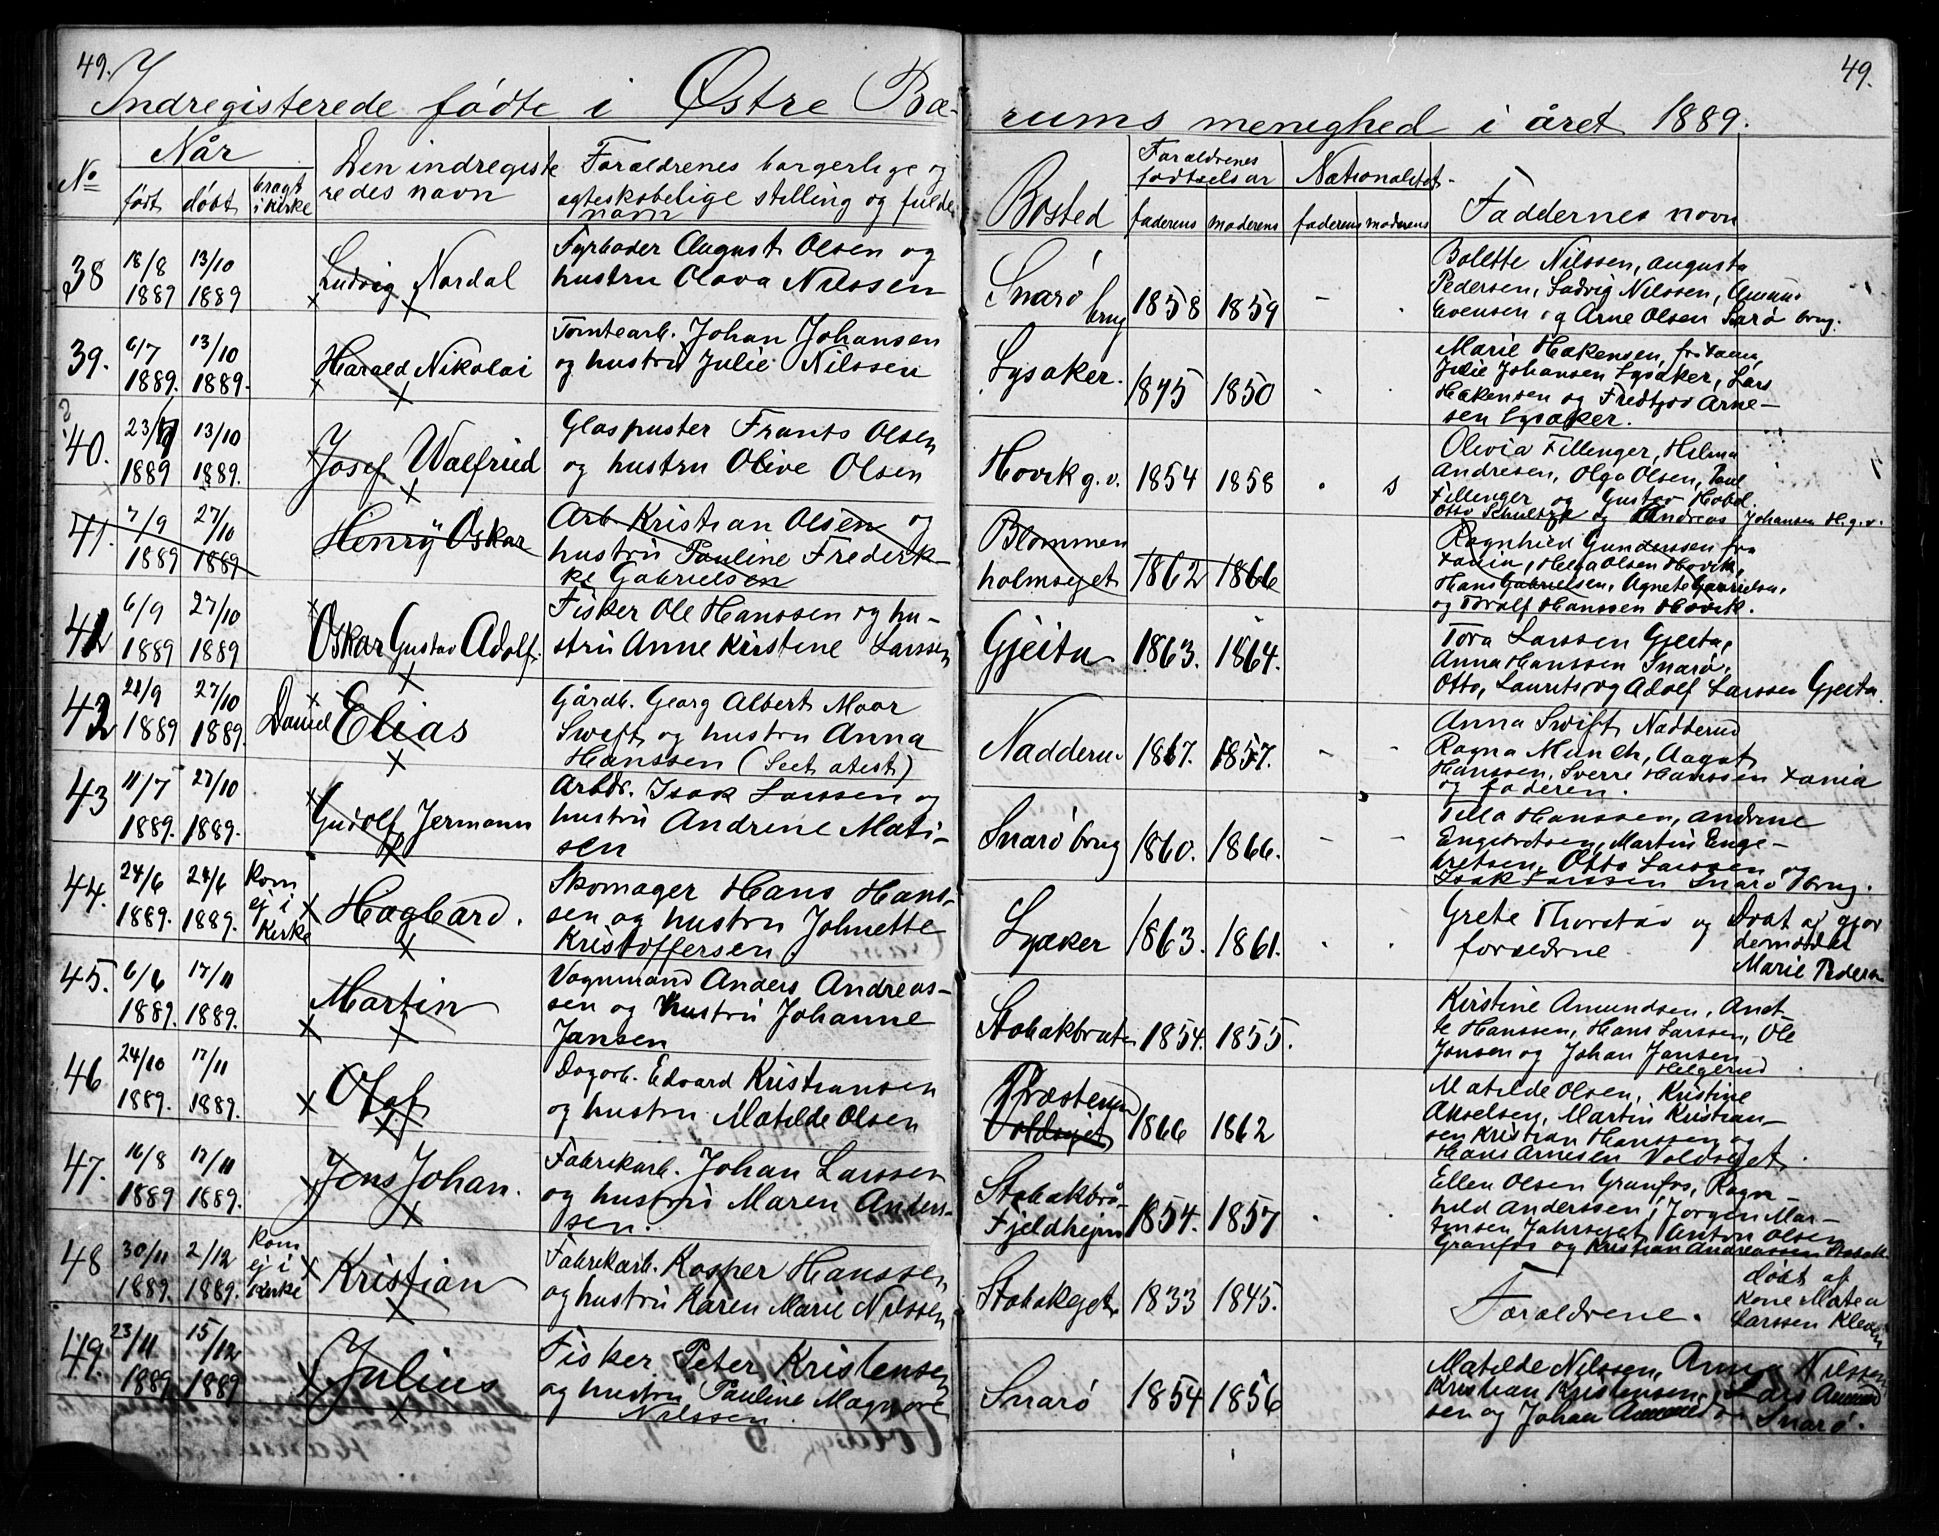 49.
49.
Indregisterede fødte i Østre Bæ-
rums menighed i året 1889.
No
Når
født
døbt
bragt i kirke
Den indregiste
redes navn
Foræeldrenes borgerlige og
egteskabelige stilling og fulde
navn
Bosted
Forældrenes
fødselsår
faderens
moderens
Nationalitet
faderens
moderens
Faddernes navn
38
18/8 13/10
1889 1889
Ludvig Nordal
Fyrbøder August Olsen og
hustru Olava Nilssen
Snarø
brug
1858 1859
Bolette Nilssen, Augusta
Pedersen, Ludvig Nilssen,
Evensen og Arne Olsen Snarø brug.
39.
6/7 13/10
1889. 1889.
Harald Nikolai
Tomtearb. Johan Johansen
og hustru Julie Nilssen
Lysaker.
1845 1850
Marie Hakensen, fr. Xania,
Julie Johansen Lysaker, Lars
Hakensen og Fredtjov Arne-
sen Lysaker.
40.
23/ 13/10
1889 1889.
Josef Walfried
Glaspuster Frants Olsen
og hustru Olive Olsen
Høvik g.v.
1854 1858
s
Olivia Fillenger, Hilma
Andresen, Olga Olsen, Paul
Fillenger og Gustav Hobøl
Otto Schultze og Andreas Johansen H.g.v.
41.
7/9 27/10
1889 1889
Henry Oskar
Arb. Kristian Olsen og
hustru Pauline Frederik-
ke Gabrielsen
Blommen
holmseget
1862 1866
Ragnhild Gunderssen fra
Xania, Helga Olsen Høvik,
Hans Gabrielsen, Agnete Gabrielsen,
og Toralf Hanssen Høvik.
42
6/9 27/10
1889 1889
Oskar Gustav Adolf.
Fisker Ole Hanssen og hu-
stru Anne Kirstine Larssen
Gjeita
1863. 1864.
Tora Larssen Gjeita,
Anna Hanssen Snarø,
Otto, Laurits og Adolf Larssen Gjeita
42
22/9 27/10
1889 1889.
Daniel Elias
Gårdb. Georg Albert Moar
Swift og hustru Anna
Hanssen (Sect atest)
Nadderu
1867. 1857.
Anna Swift Nadderud
Ragna Munch, Aagot
Hanssen, Sverre Hanssen Xania
og faderen.
43
11/7 27/10
1889. 1889.
Gudolf Jermann
Arbdr. Isak Larssen og
hustru Andrine Mati-
sen
Snarø brug
1860. 1866.
Tilla Hanssen, Andrine
Engebretsen, Martin Enge-
bretsen, Otto Larssen og
Isak Larssen Snarø brug.
44.
24/6 24/6
1889. 1889.
kom
ej i
kirke
Hagbard.
Skomager Hans Hans-
sen og hustru Johnette
Kristoffersen
Lysaker
1863. 1861.
Grete Thorstad og
forældrne
Døbt af gjor
demoder
Marie Pedersen
45.
6/6 17/11
1889. 1889.
Martin
Vognmand Anders Andreas-
sen og hustru Johanne
Jansen
Stabakbråten
1854. 1855.
Kirstine Amundsen, Anet-
te Hanssen, Hans Larssen, Ole
Jonsen og Johan Jansen
Helgerud
46
24/10 17/11
1889. 1889.
Olaf
Dagarb. Edvard Kristiansen
og hustru Matilde Olsen
Præsterud
Voldseget
1866 1862
Matilde Olsen, Kristine
Akselsen, Martin Kristian-
sen Kristian Hanssen og
Hans Arnesen Voldseget
47.
16/8 17/11
1889 1889.
Jens Johan.
Fabrikarb. Johan Larssen
og hustru Maren Anders-
sen.
Stabakbrå-
Fjeldhejm
1854. 1857
Ellen Olsen Granfos, Ragn-
hild Anderssen, Jørgen Mar-
tinsen Jahrseget, Anton Olsen
Granfos og Kristian Andreassen Stabak
48
30/11 2/12
1889. 1889.
kom
ej i
kirke
Kristian
Fabrikarb. Kasper Hanssen
og hustru Karen Marie Nilssen
Stabakeget.
1833 1845.
Forældrene.
døbt af
Kone Matea
Larssen
49.
23/11 15/12
1889 1889
Julius
Fisker Peter Kristensen
og hustru Pauline Magnore
Nilssen.
Snarø
1854 1856
Matilde Nilssen, Anna Nilssen
Kristian Kristensen, Lars Amund
sen og Johan
Snarø.